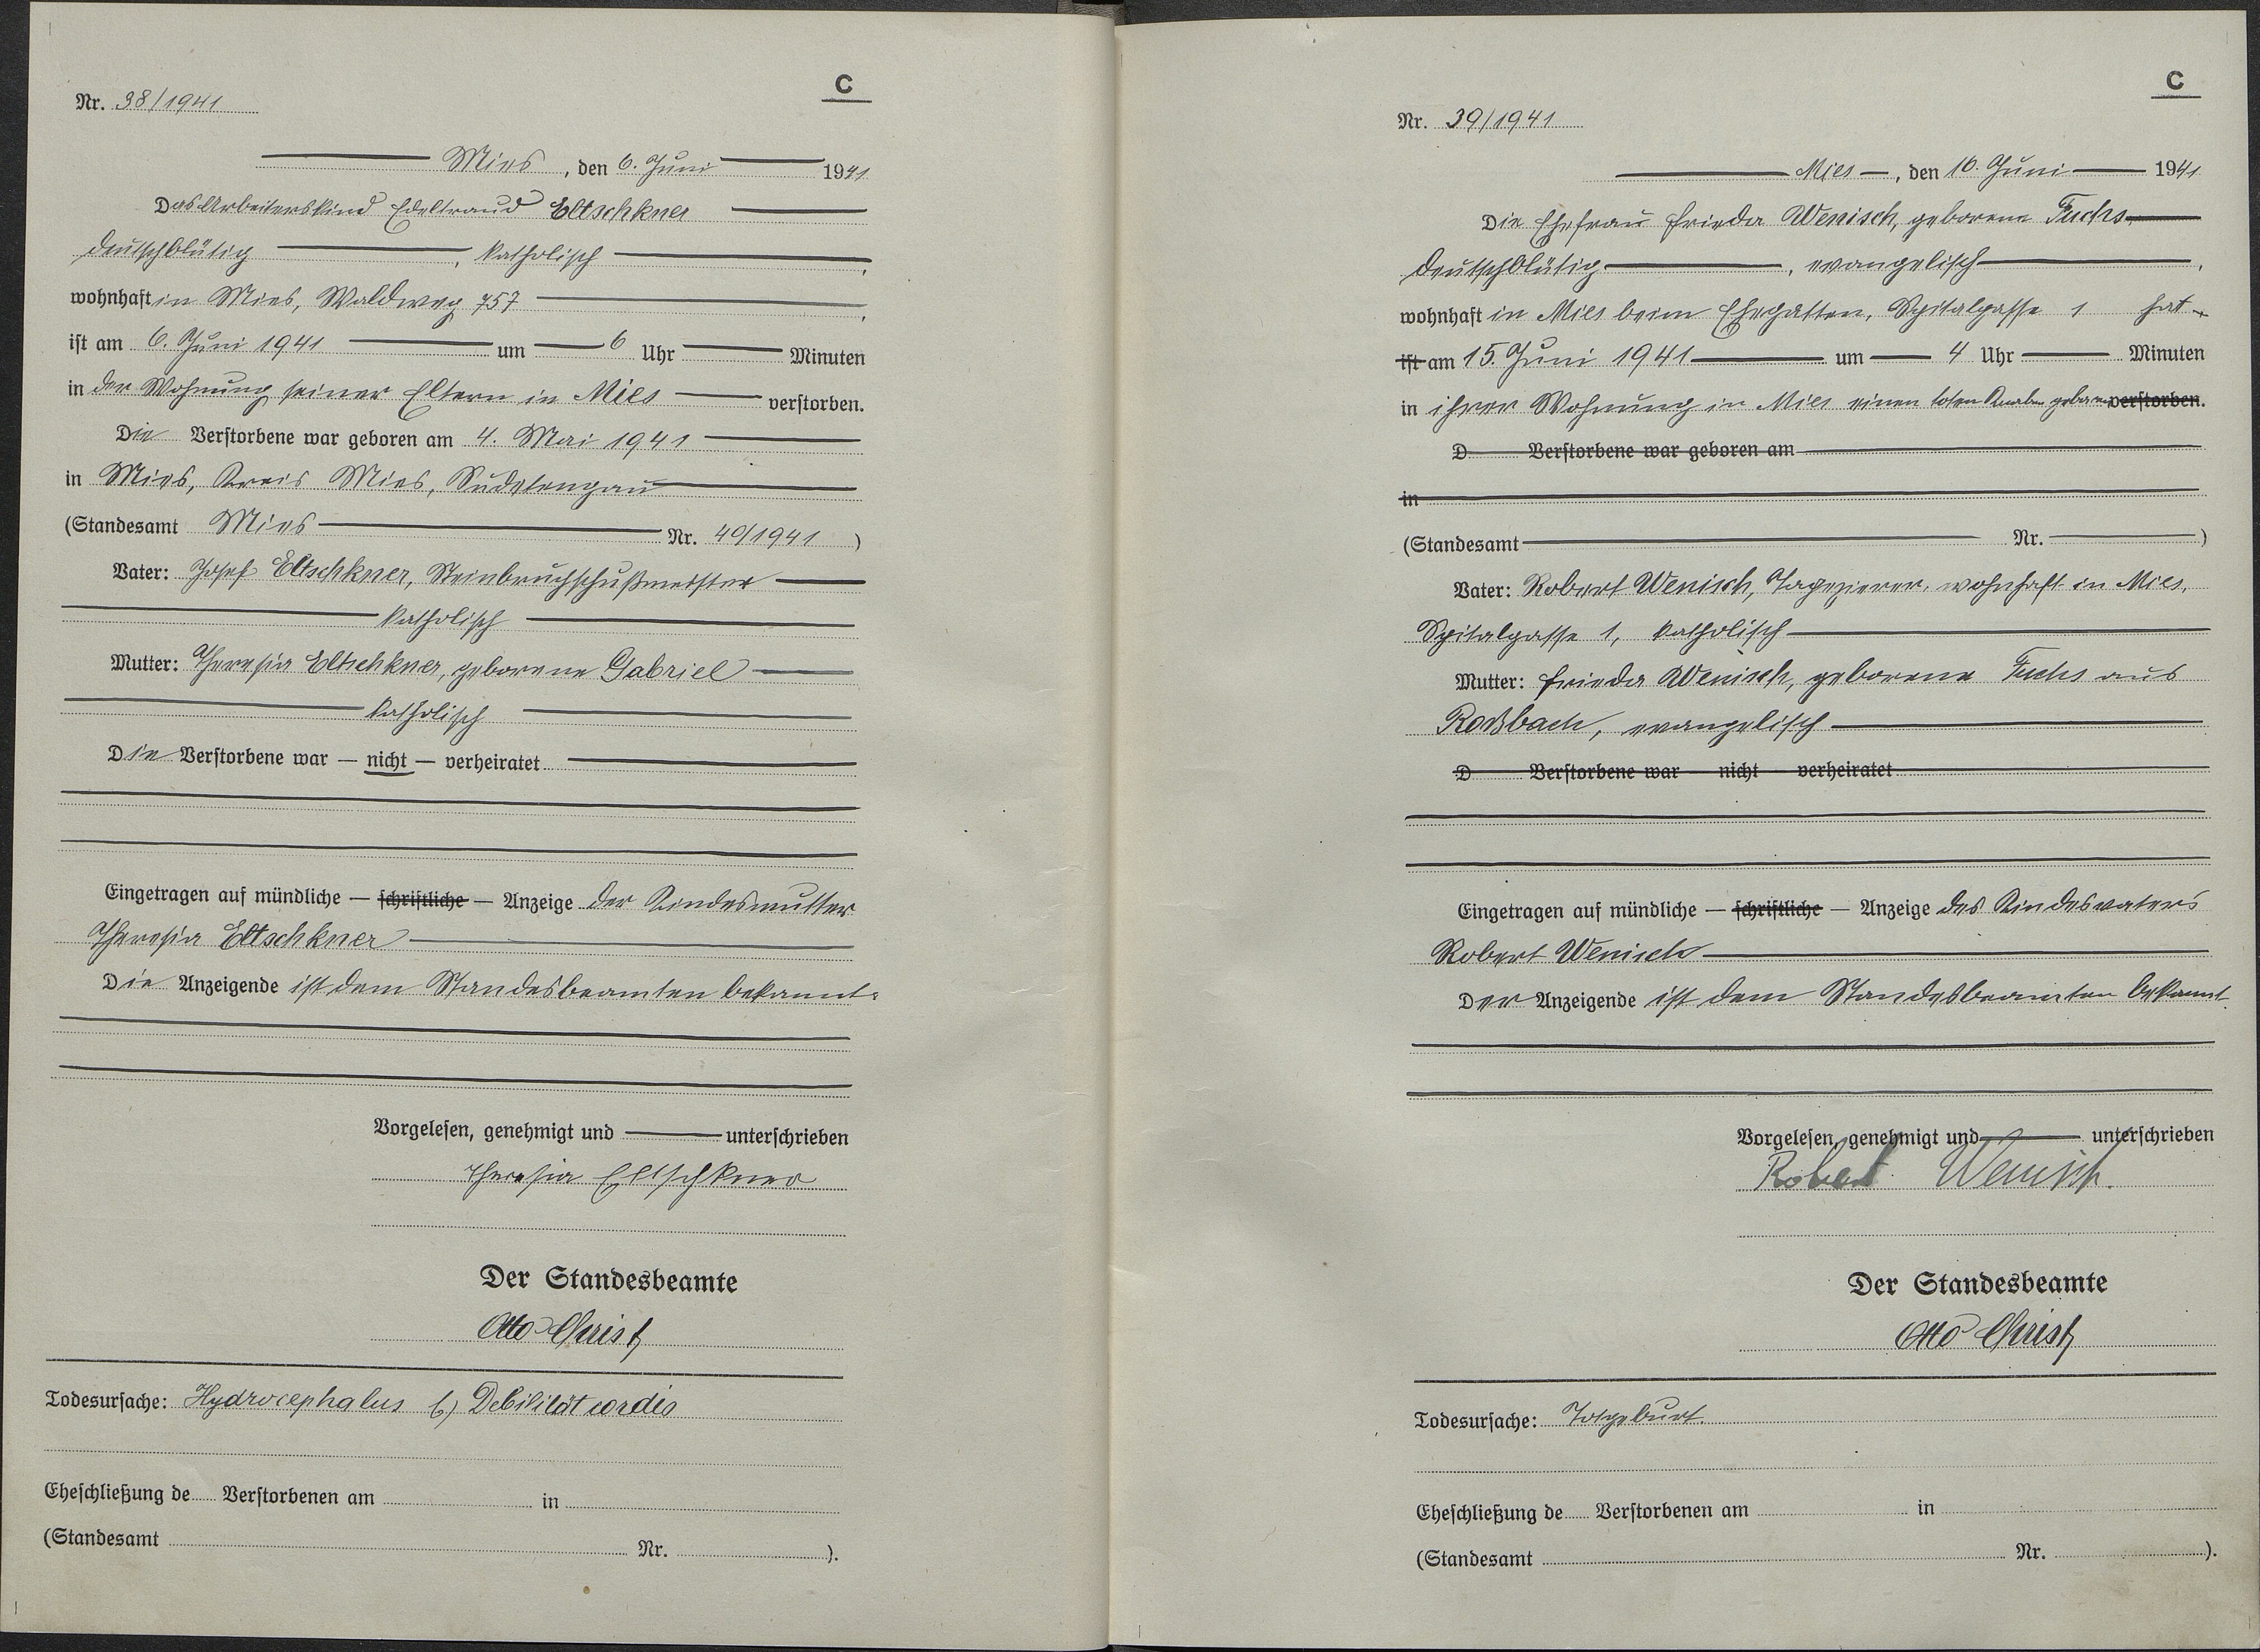 C
Nr. 38/1941
Mies, den 6. Juni 1941
Das Arbeiterskind Edeltraud Eltschkner
deutschblütig, katholisch,
wohnhaft in Mies, Waldweg 757,
ist am 6. Juni 1941 um 6 Uhr Minuten
in der Wohnung seiner Eltern in Mies verstorben.
Die Verstorbene war geboren am 4. Mai 1941
in Mies, Kreis Mies, Sudetengau
(Standesamt Mies Nr. 40/1941)
Vater: Josef Eltschkner, Steinbruchschußmeister
katholisch
Mutter: Theresia Eltschkner, geborene Gabriel
katholisch
Die Verstorbene war — nicht — verheiratet
Eingetragen auf mündliche — schriftliche — Anzeige der Kindesmutter
Theresia Eltschkner
Die Anzeigende ist dem Standesbeamten bekannt.
Vorgelesen, genehmigt und unterschrieben
Theresia Eltschkner
Der Standesbeamte
Otto Christ
Todesursache: Hydrocephalus b) Debilität cordis
Eheschließung de Verstorbenen am in
(Standesamt Nr. ).
C
Nr. 39/1941
Mies, den 16. Juni 1941
Die Ehefrau Frieda Wenisch, geborene Fuchs
deutschblütig, evangelisch,
wohnhaft in Mies beim Ehegatten, Spitalgasse 1 hat
ist am 15. Juni 1941 um 4 Uhr Minuten
in ihrer Wohnung in Mies einen toten Knaben geboren verstorben.
D Verstorbene war geboren am
in
(Standesamt Nr. )
Vater: Robert Wenisch, Tapezierer, wohnhaft in Mies,
Spitalgasse 1, katholisch
Mutter: Frieda Wenisch, geborene Fuchs aus
Roßbach, evangelisch
D Verstorbene war nicht verheiratet
Eingetragen auf mündliche — schriftliche — Anzeige des Kindesvaters
Robert Wenisch
Der Anzeigende ist dem Standesbeamten bekannt.
Vorgelesen, genehmigt und unterschrieben
Robert Wenisch.
Der Standesbeamte
Otto Christ
Todesursache: Totgeburt.
Eheschließung de Verstorbenen am in
(Standesamt Nr. ).